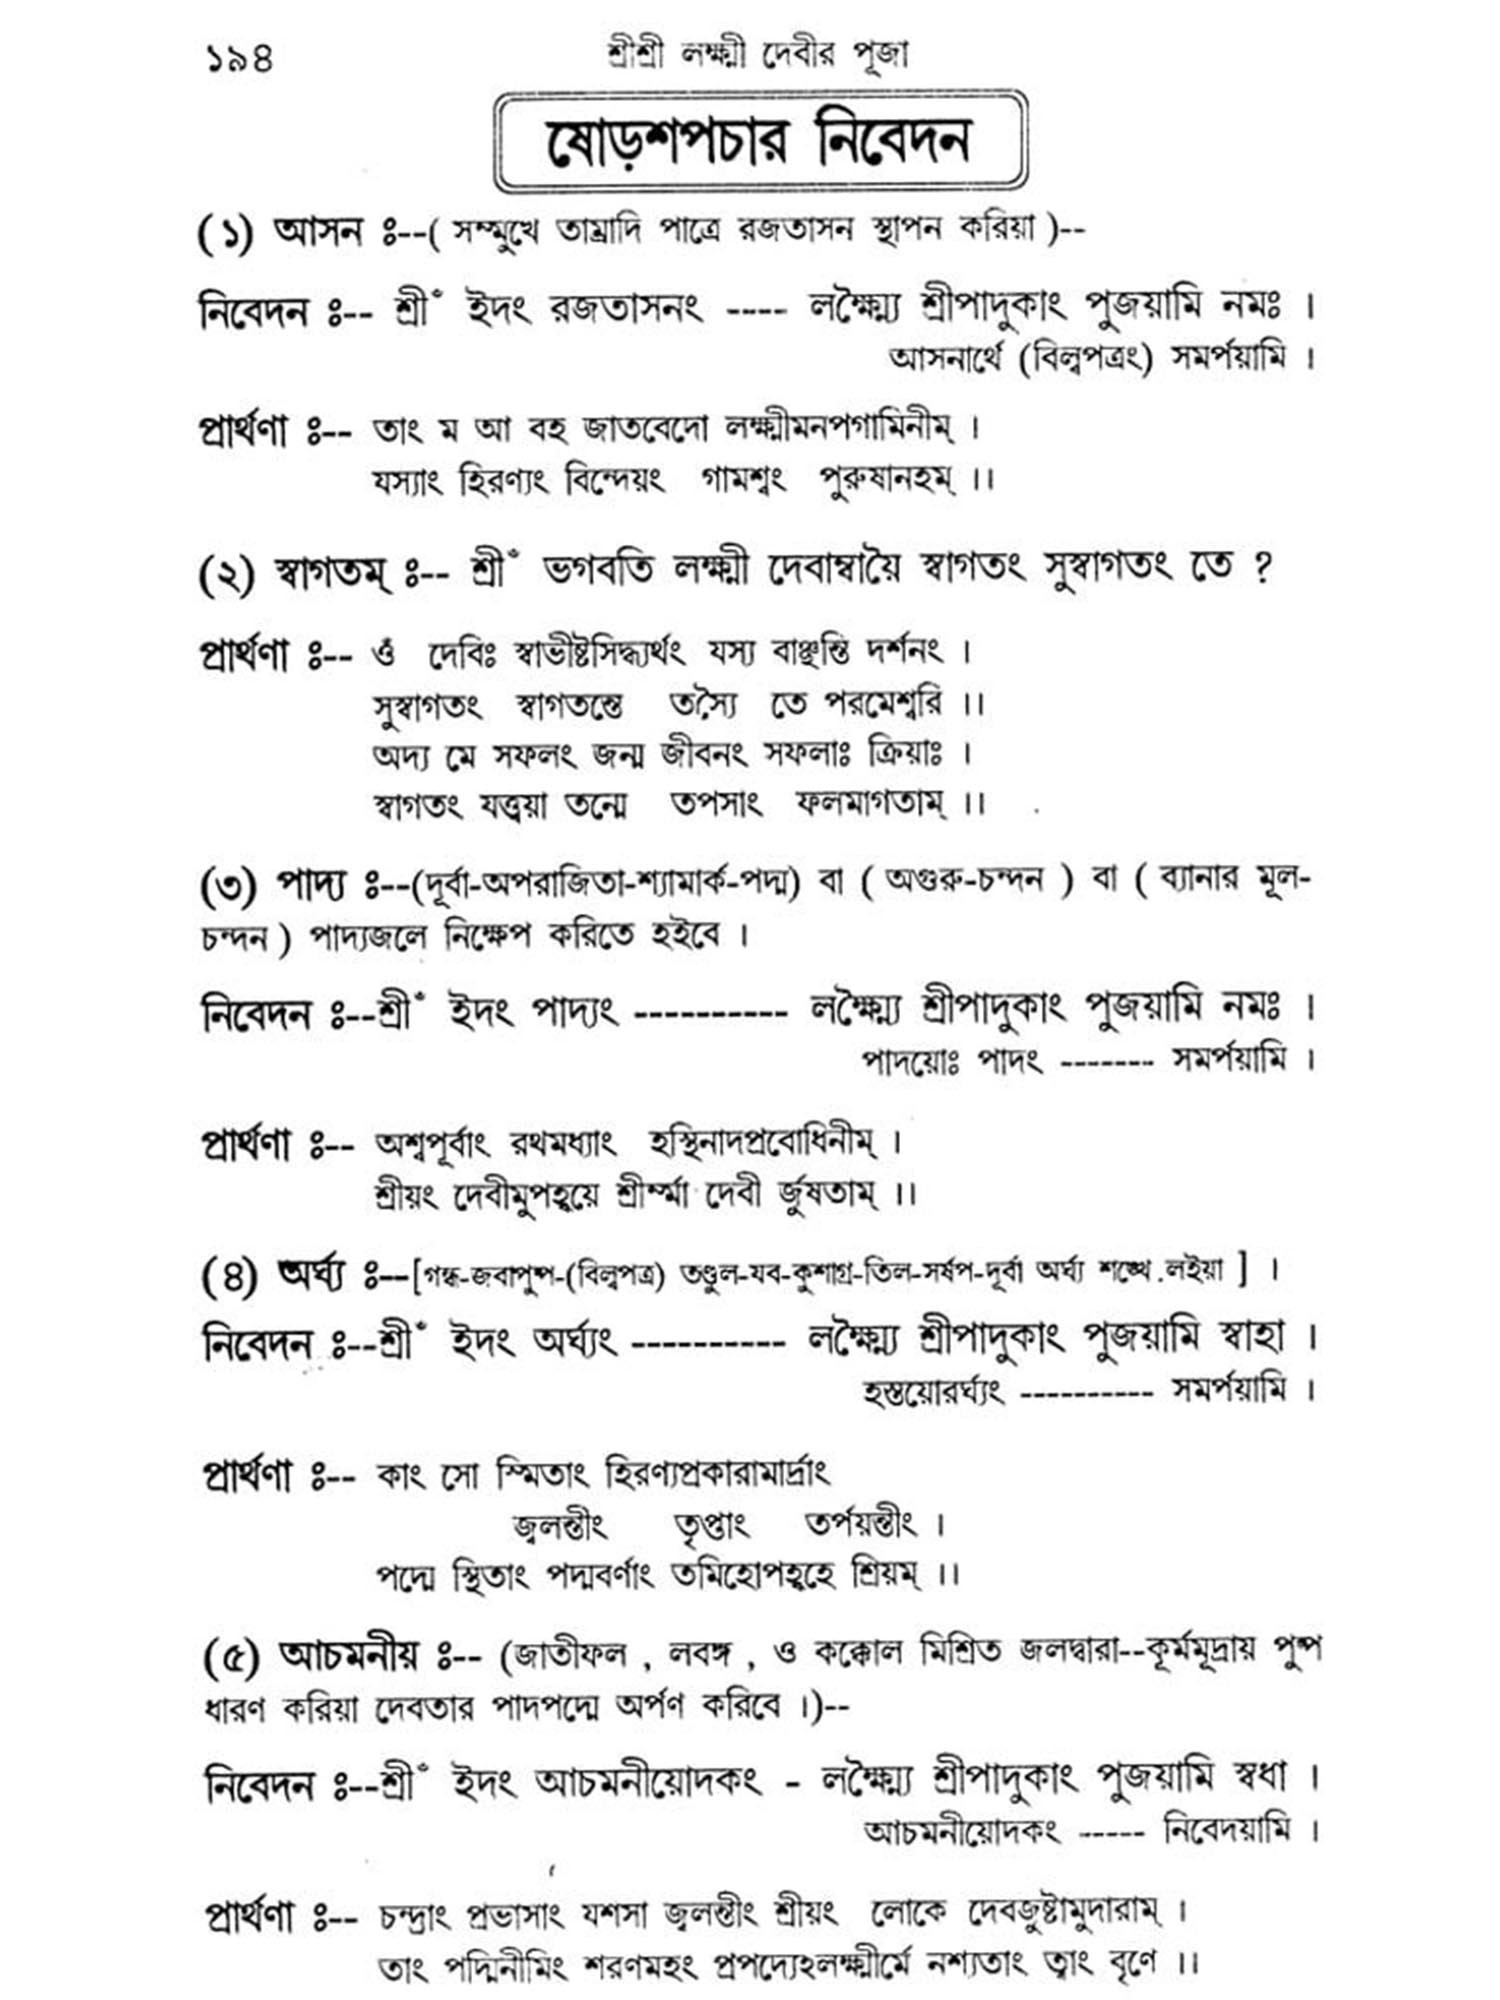 ১৯৪
শ্রীশ্রী লক্ষ্মী দেবীর পূজা
ষোড়শপচার নিবেদন
(১) আসন ঃ--( সম্মুখে তাম্রাদি পাত্রে রজতাসন স্থাপন করিয়া )--
নিবেদন ঃ-- শ্রীঁ ইদং রজতাসনং ---- লক্ষ্ম্যৈ শ্রীপাদুকাং পুজয়ামি নমঃ ।
আসনার্থে (বিল্বপত্রং) সমর্পয়ামি ।
প্রার্থণা ঃ-- তাং ম আ বহ জাতবেদো লক্ষ্মীমনপগামিনীম্ ।
যস্যাং হিরণ্যং বিন্দেয়ং গামশ্বং পুরুষানহম্ ।।
(২) স্বাগতম্ ঃ-- শ্রীঁ ভগবতি লক্ষ্মী দেবাম্বায়ৈ স্বাগতং সুস্বাগতং তে ?
প্রার্থণা ঃ-- ওঁ দেবিঃ স্বাভীষ্টসিদ্ধ্যর্থং যস্য বাঞ্ছন্তি দর্শনং ।
সুস্বাগতং স্বাগতন্তে তস্যৈ তে পরমেশ্বরি ।।
অদ্য মে সফলং জন্ম জীবনং সফলাঃ ক্রিয়াঃ ।
স্বাগতং যত্ত্বয়া তন্মে তপসাং ফলমাগতাম্ ।।
(৩) পাদ্য ঃ--(দূর্বা-অপরাজিতা-শ্যামার্ক-পদ্ম) বা ( অগুরু-চন্দন ) বা ( ব্যানার মূল-
চন্দন ) পাদ্যজলে নিক্ষেপ করিতে হইবে ।
নিবেদন ঃ--শ্রীঁ ইদং পাদ্যং ---------- লক্ষ্ম্যৈ শ্রীপাদুকাং পুজয়ামি নমঃ ।
পাদয়োঃ পাদং ------- সমর্পয়ামি ।
প্রার্থণা ঃ-- অশ্বপূর্বাং রথমধ্যাং হস্থিনাদপ্রবোধিনীম্ ।
শ্রীয়ং দেবীমুপহ্বয়ে শ্রীর্ম্মা দেবী র্জুষতাম্ ।।
(৪) অর্ঘ্য ঃ--[গন্ধ-জবাপুষ্প-(বিল্বপত্র) তণ্ডুল-যব-কুশাগ্র-তিল-সর্ষপ-দূর্বা অর্ঘ্য শঙ্খে লইয়া ] ।
নিবেদন ঃ--শ্রীঁ ইদং অর্ঘ্যং ---------- লক্ষ্ম্যৈ শ্রীপাদুকাং পুজয়ামি স্বাহা ।
হস্তয়োরর্ঘ্যং ---------- সমর্পয়ামি ।
প্রার্থণা ঃ-- কাং সো স্মিতাং হিরণ্যপ্রকারামার্দ্রাং
জ্বলন্তীং তৃপ্তাং তর্পয়ন্তীং ।
পদ্মে স্থিতাং পদ্মবর্ণাং তমিহোপহ্বহে শ্রিয়ম্ ।।
(৫) আচমনীয় ঃ-- (জাতীফল , লবঙ্গ , ও কক্কোল মিশ্রিত জলদ্বারা--কূর্মমুদ্রায় পুষ্প
ধারণ করিয়া দেবতার পাদপদ্মে অর্পণ করিবে ।)--
নিবেদন ঃ--শ্রীঁ ইদং আচমনীয়োদকং - লক্ষ্ম্যৈ শ্রীপাদুকাং পুজয়ামি স্বধা ।
আচমনীয়োদকং ----- নিবেদয়ামি ।
প্রার্থণা ঃ-- চন্দ্রাং প্রভাসাং যশসা জ্বলন্তীং শ্রীয়ং লোকে দেবজুষ্টামুদারাম্ ।
তাং পদ্মিনীমিং শরণমহং প্রপদ্যেঽলক্ষ্মীর্মে নশ্যতাং ত্বাং বৃণে ।।